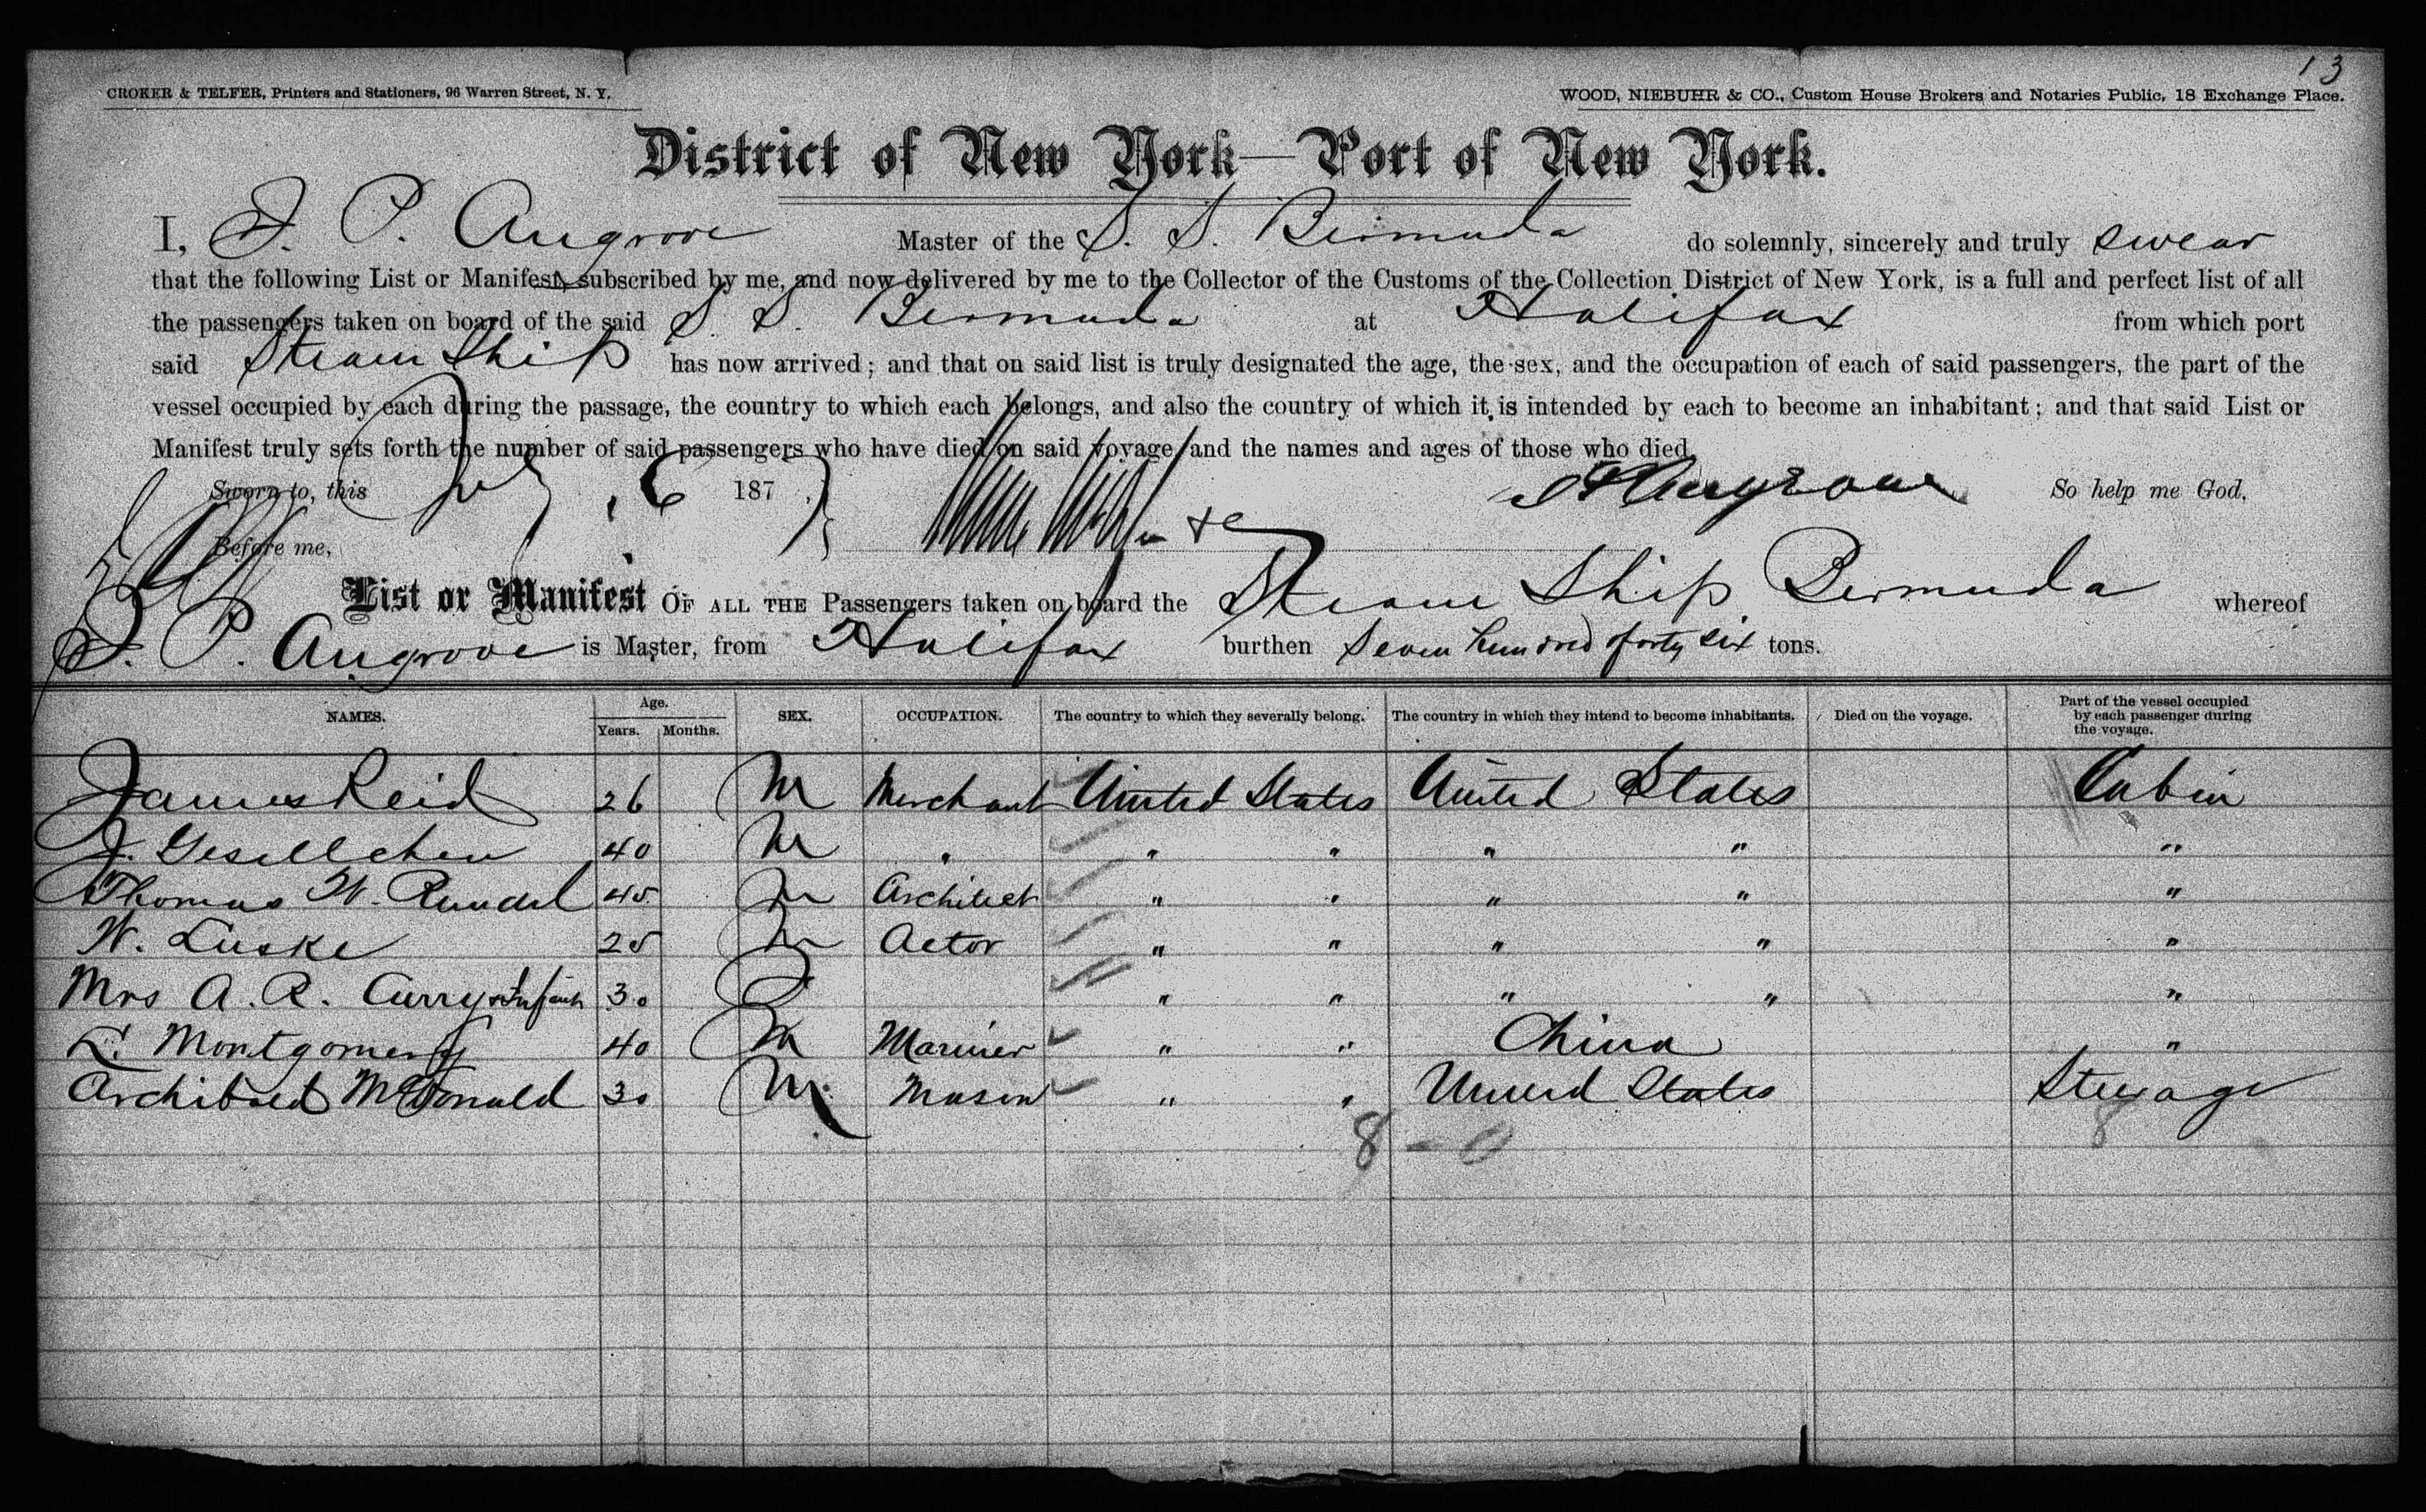 13
CROKER & TELFER, Printers and Stationers, 96 Warren Street, N. Y.
WOOD, NIEBUHR & CO., Custom House Brokers and Notaries Public, 18 Exchange Place.
District of New York—Port of New York.
I, J. P. Angrove Master of the S. S. Bermuda do solemnly, sincerely and truly swear
that the following List or Manifest, subscribed by me, and now delivered by me to the Collector of the Customs of the Collection District of New York, is a full and perfect list of all
the passengers taken on board of the said S. S. Bermuda at Halifax from which port
said Steam Ship has now arrived; and that on said list is truly designated the age, the sex, and the occupation of each of said passengers, the part of the
vessel occupied by each during the passage, the country to which each belongs, and also the country of which it is intended by each to become an inhabitant; and that said List or
Manifest truly sets forth the number of said passengers who have died on said voyage, and the names and ages of those who died.
Sworn to, this July 6 187 J P Angrove So help me God,
Before me,
List or Manifest OF ALL THE Passengers taken on board the Steam Ship Bermuda whereof
J. P. Angrove is Master, from Halifax burthen Seven hundred forty six tons.
NAMES. Age. Years. Months. SEX. OCCUPATION. The country to which they severally belong. The country in which they intend to become inhabitants. Died on the voyage. Part of the vessel occupied by each passenger during the voyage.
James Reid 26 M Merchant United States United States Cabin
J. Gesellchen 40 M " " " " " "
Thomas W. Rundel 45 M Architect " " " " "
W. Luske 25 M Actor " " " " "
Mrs A. R. Curry & Infant 30 F " " " " "
L. Montgomery 40 M Mariner " " China "
Archibald McDonald 30 M Mason " " United States Steerage
8 - 0 8